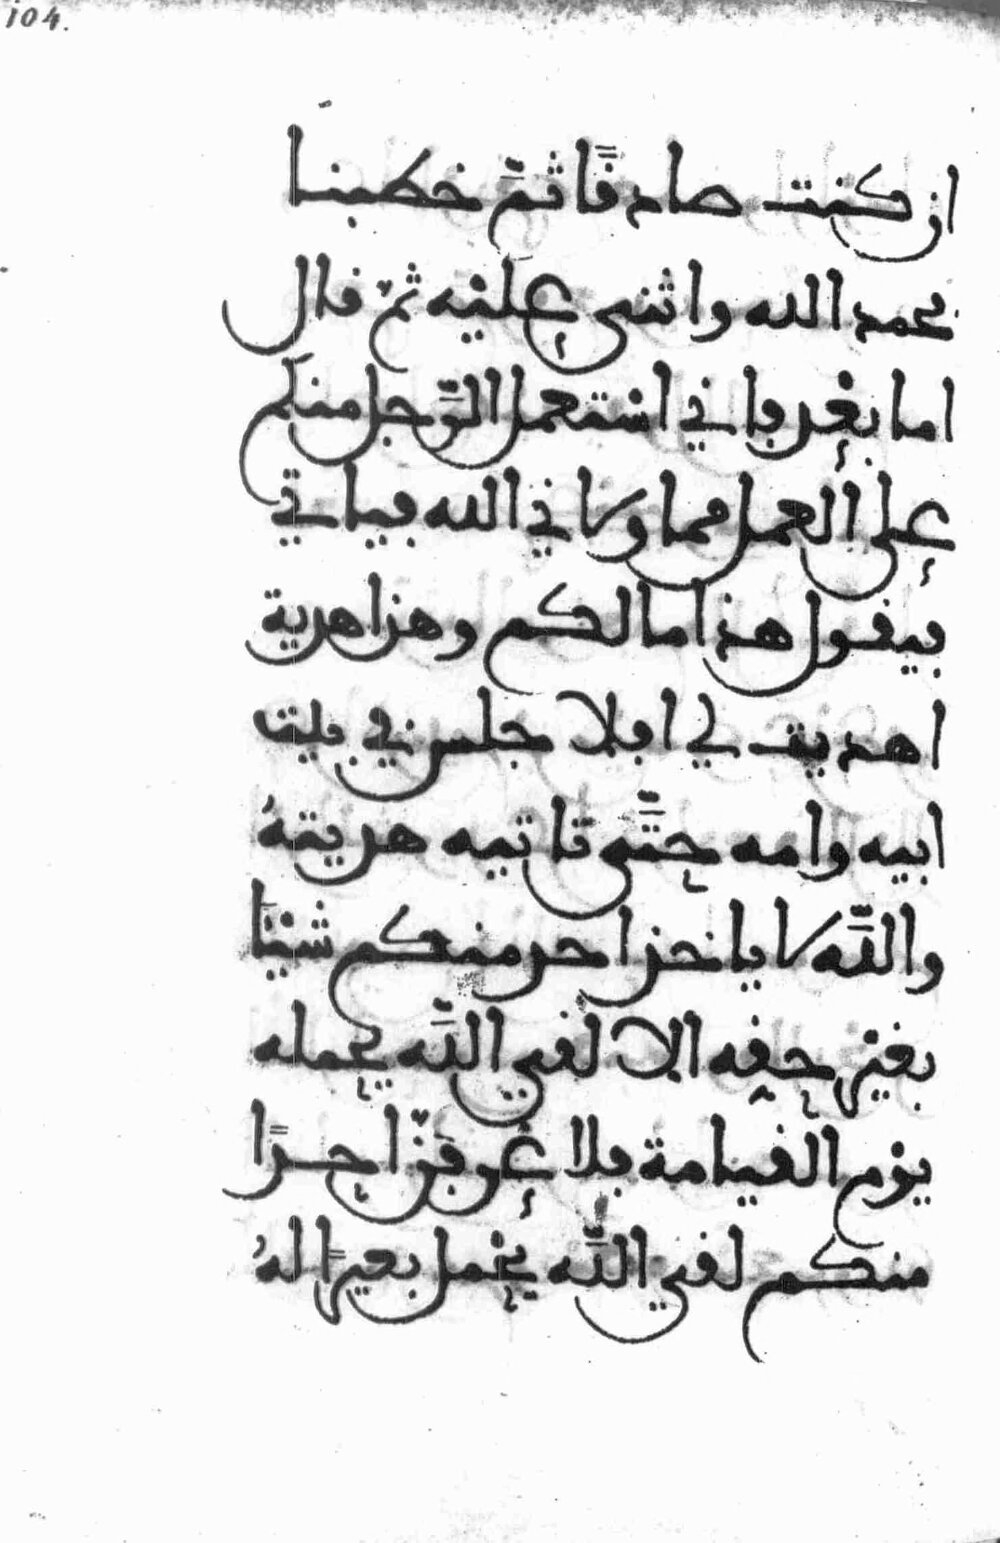 104.
ان كنت صادقًا ثمّ خطبنا
فحمد الله واثنى عليه ثمّ قال
اما بعد فاني استعمل الرّجل منكم
على العمل مما ولاني الله فياتي
فيقول هذا مالكم وهذا هدية
اهديت لي افلا جلس في بيت
ابيه وامه حتّى تاتيه هديتهُ
واللّه لا ياخذ احد منكم شيئًا
بغير حقه الا لقي اللّه يحمله
يوم القيامة فلا عرفنّ احدًا
منكم لقي اللّه يحمل بعيرًا لهُ